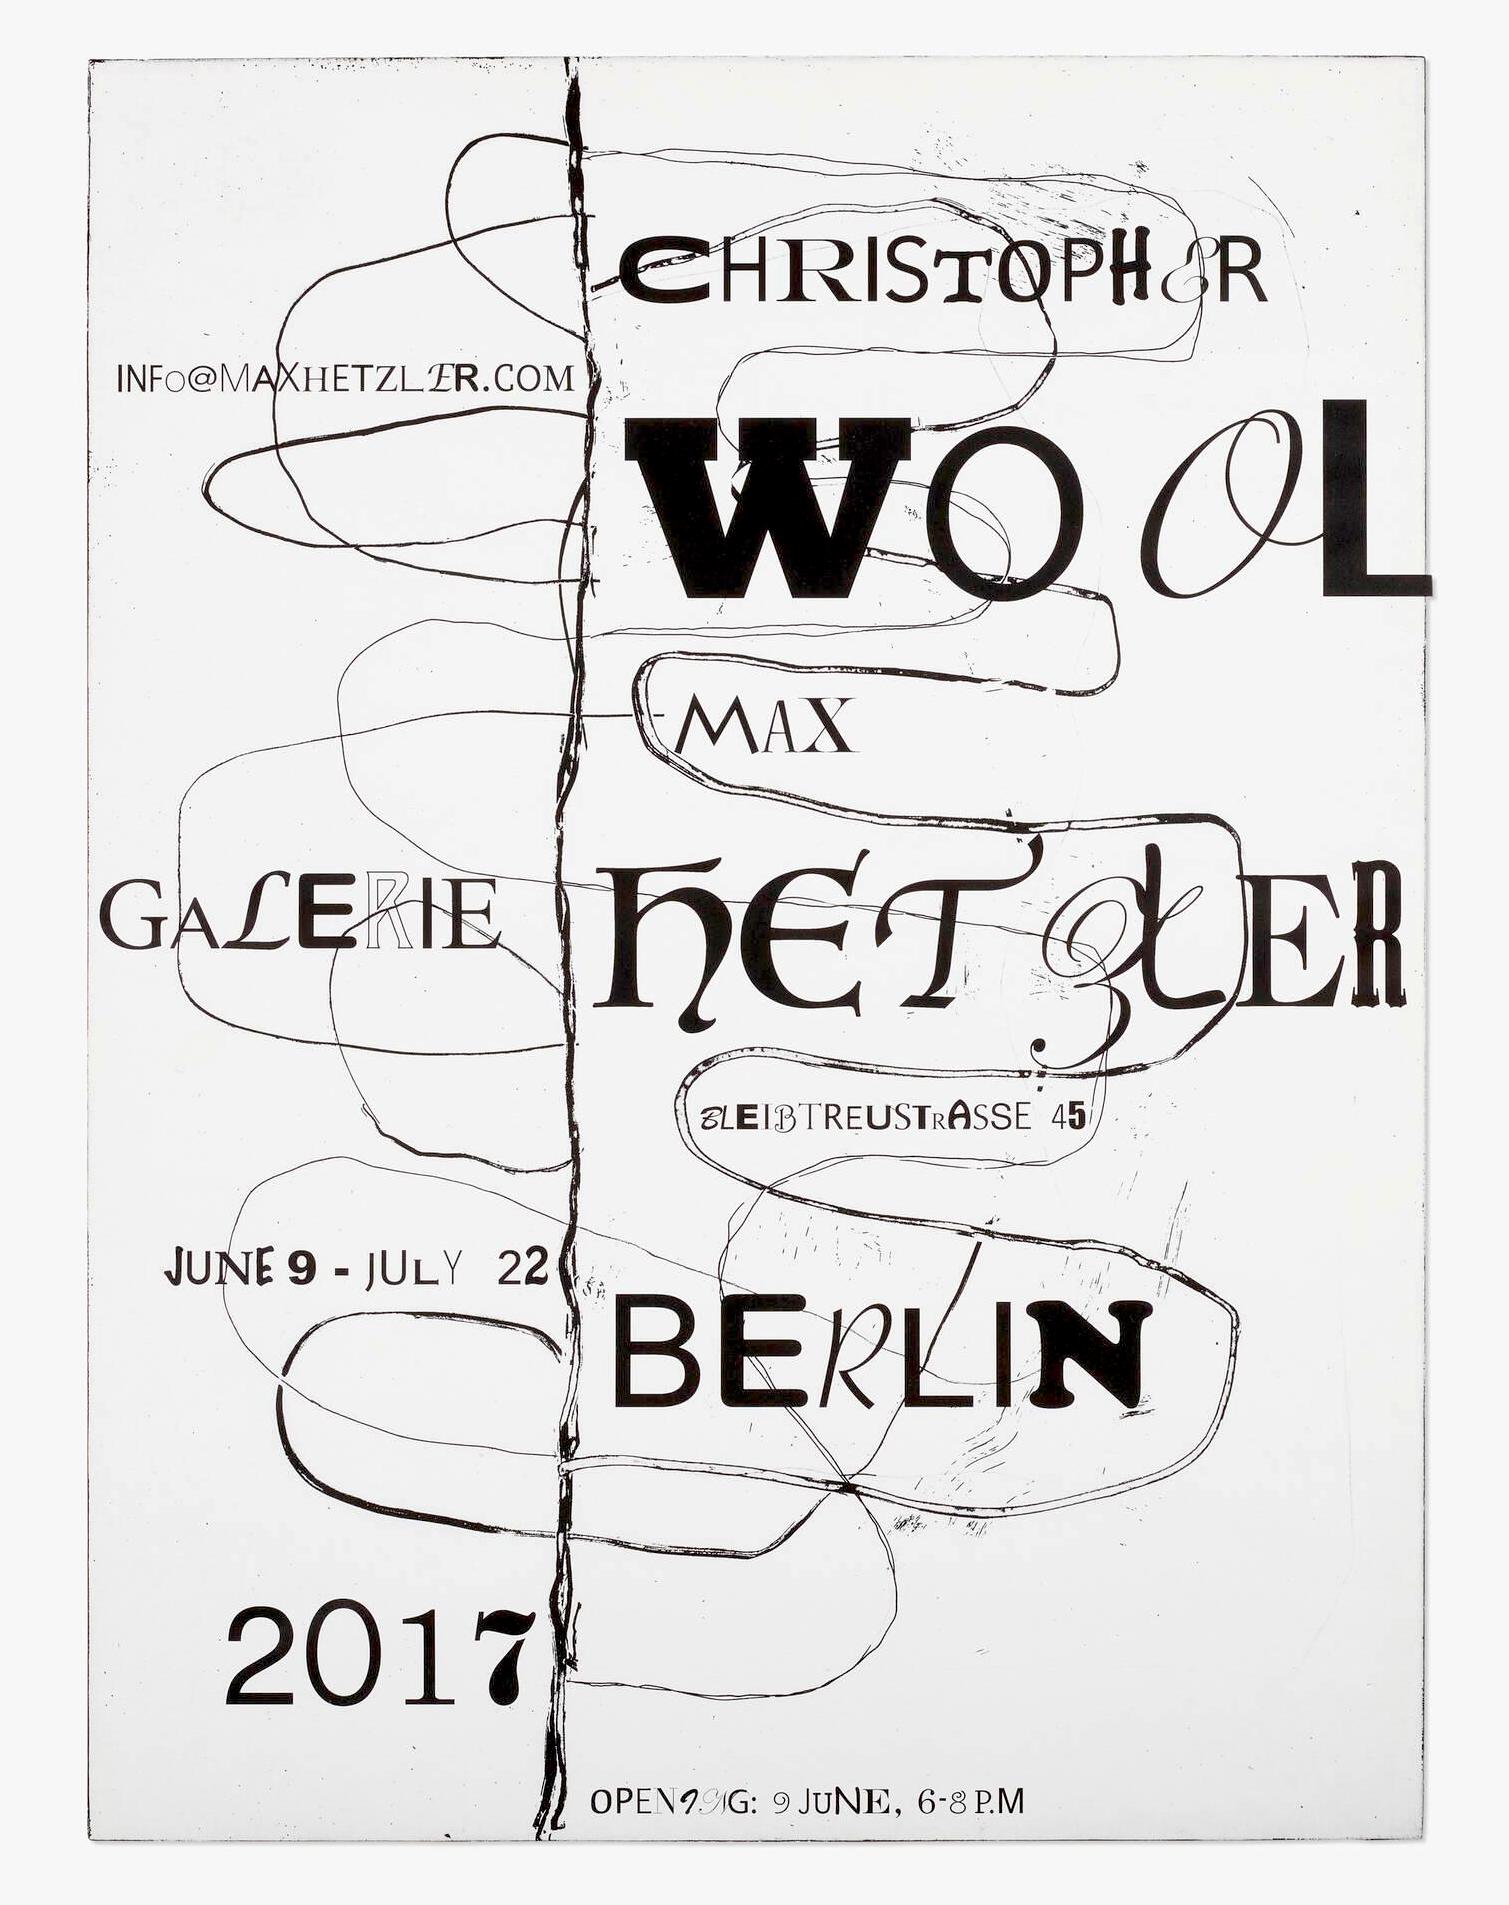 CHRISTOPHER
INFO@MAXHETZLER.COM
WOOL
MAX
GALERIE HETZLER
BLEIBTREUSTRASSE 45
JUNE 9 - JULY 22
BERLIN
2017
OPENING: 9 JUNE, 6-8 P.M